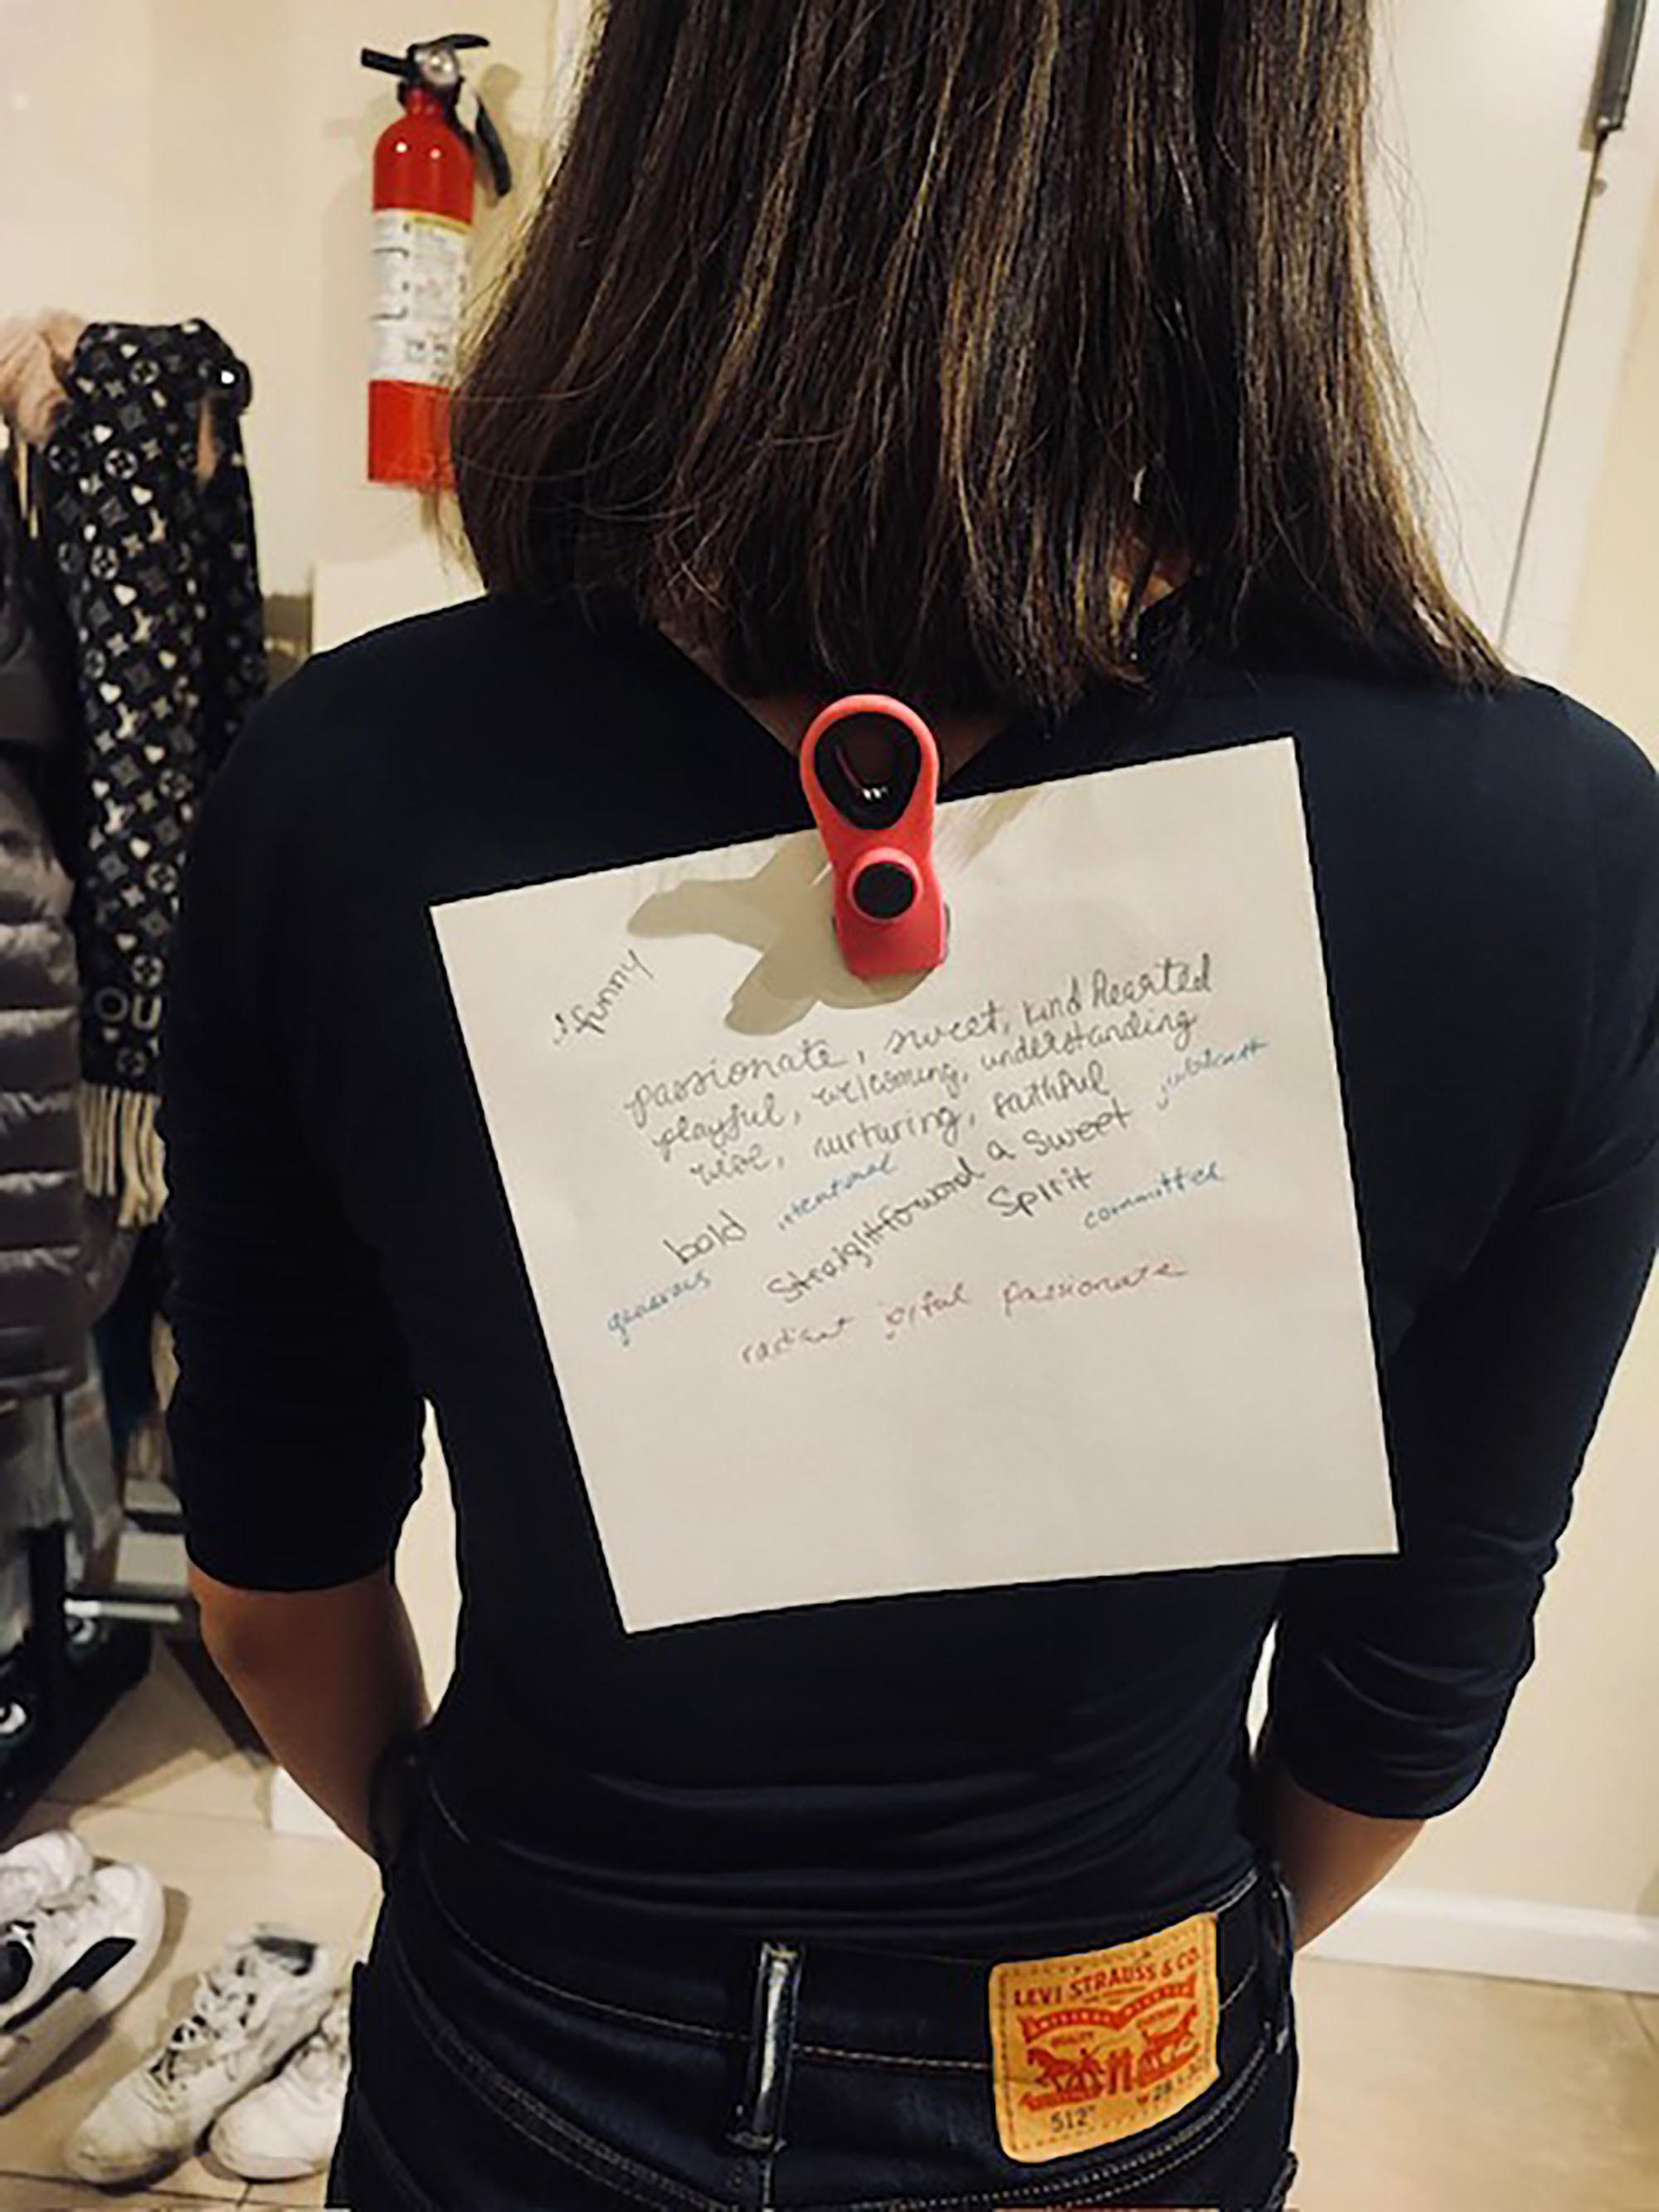 funny
passionate, sweet, kind hearted
playful, welcoming, understanding
wise, nurturing, faithful
jubilant
bold intentional
straightforward a sweet
spirit
committed
generous
radiant joyful passionate
OU
LEVI STRAUSS & CO.
QUALITY
512™